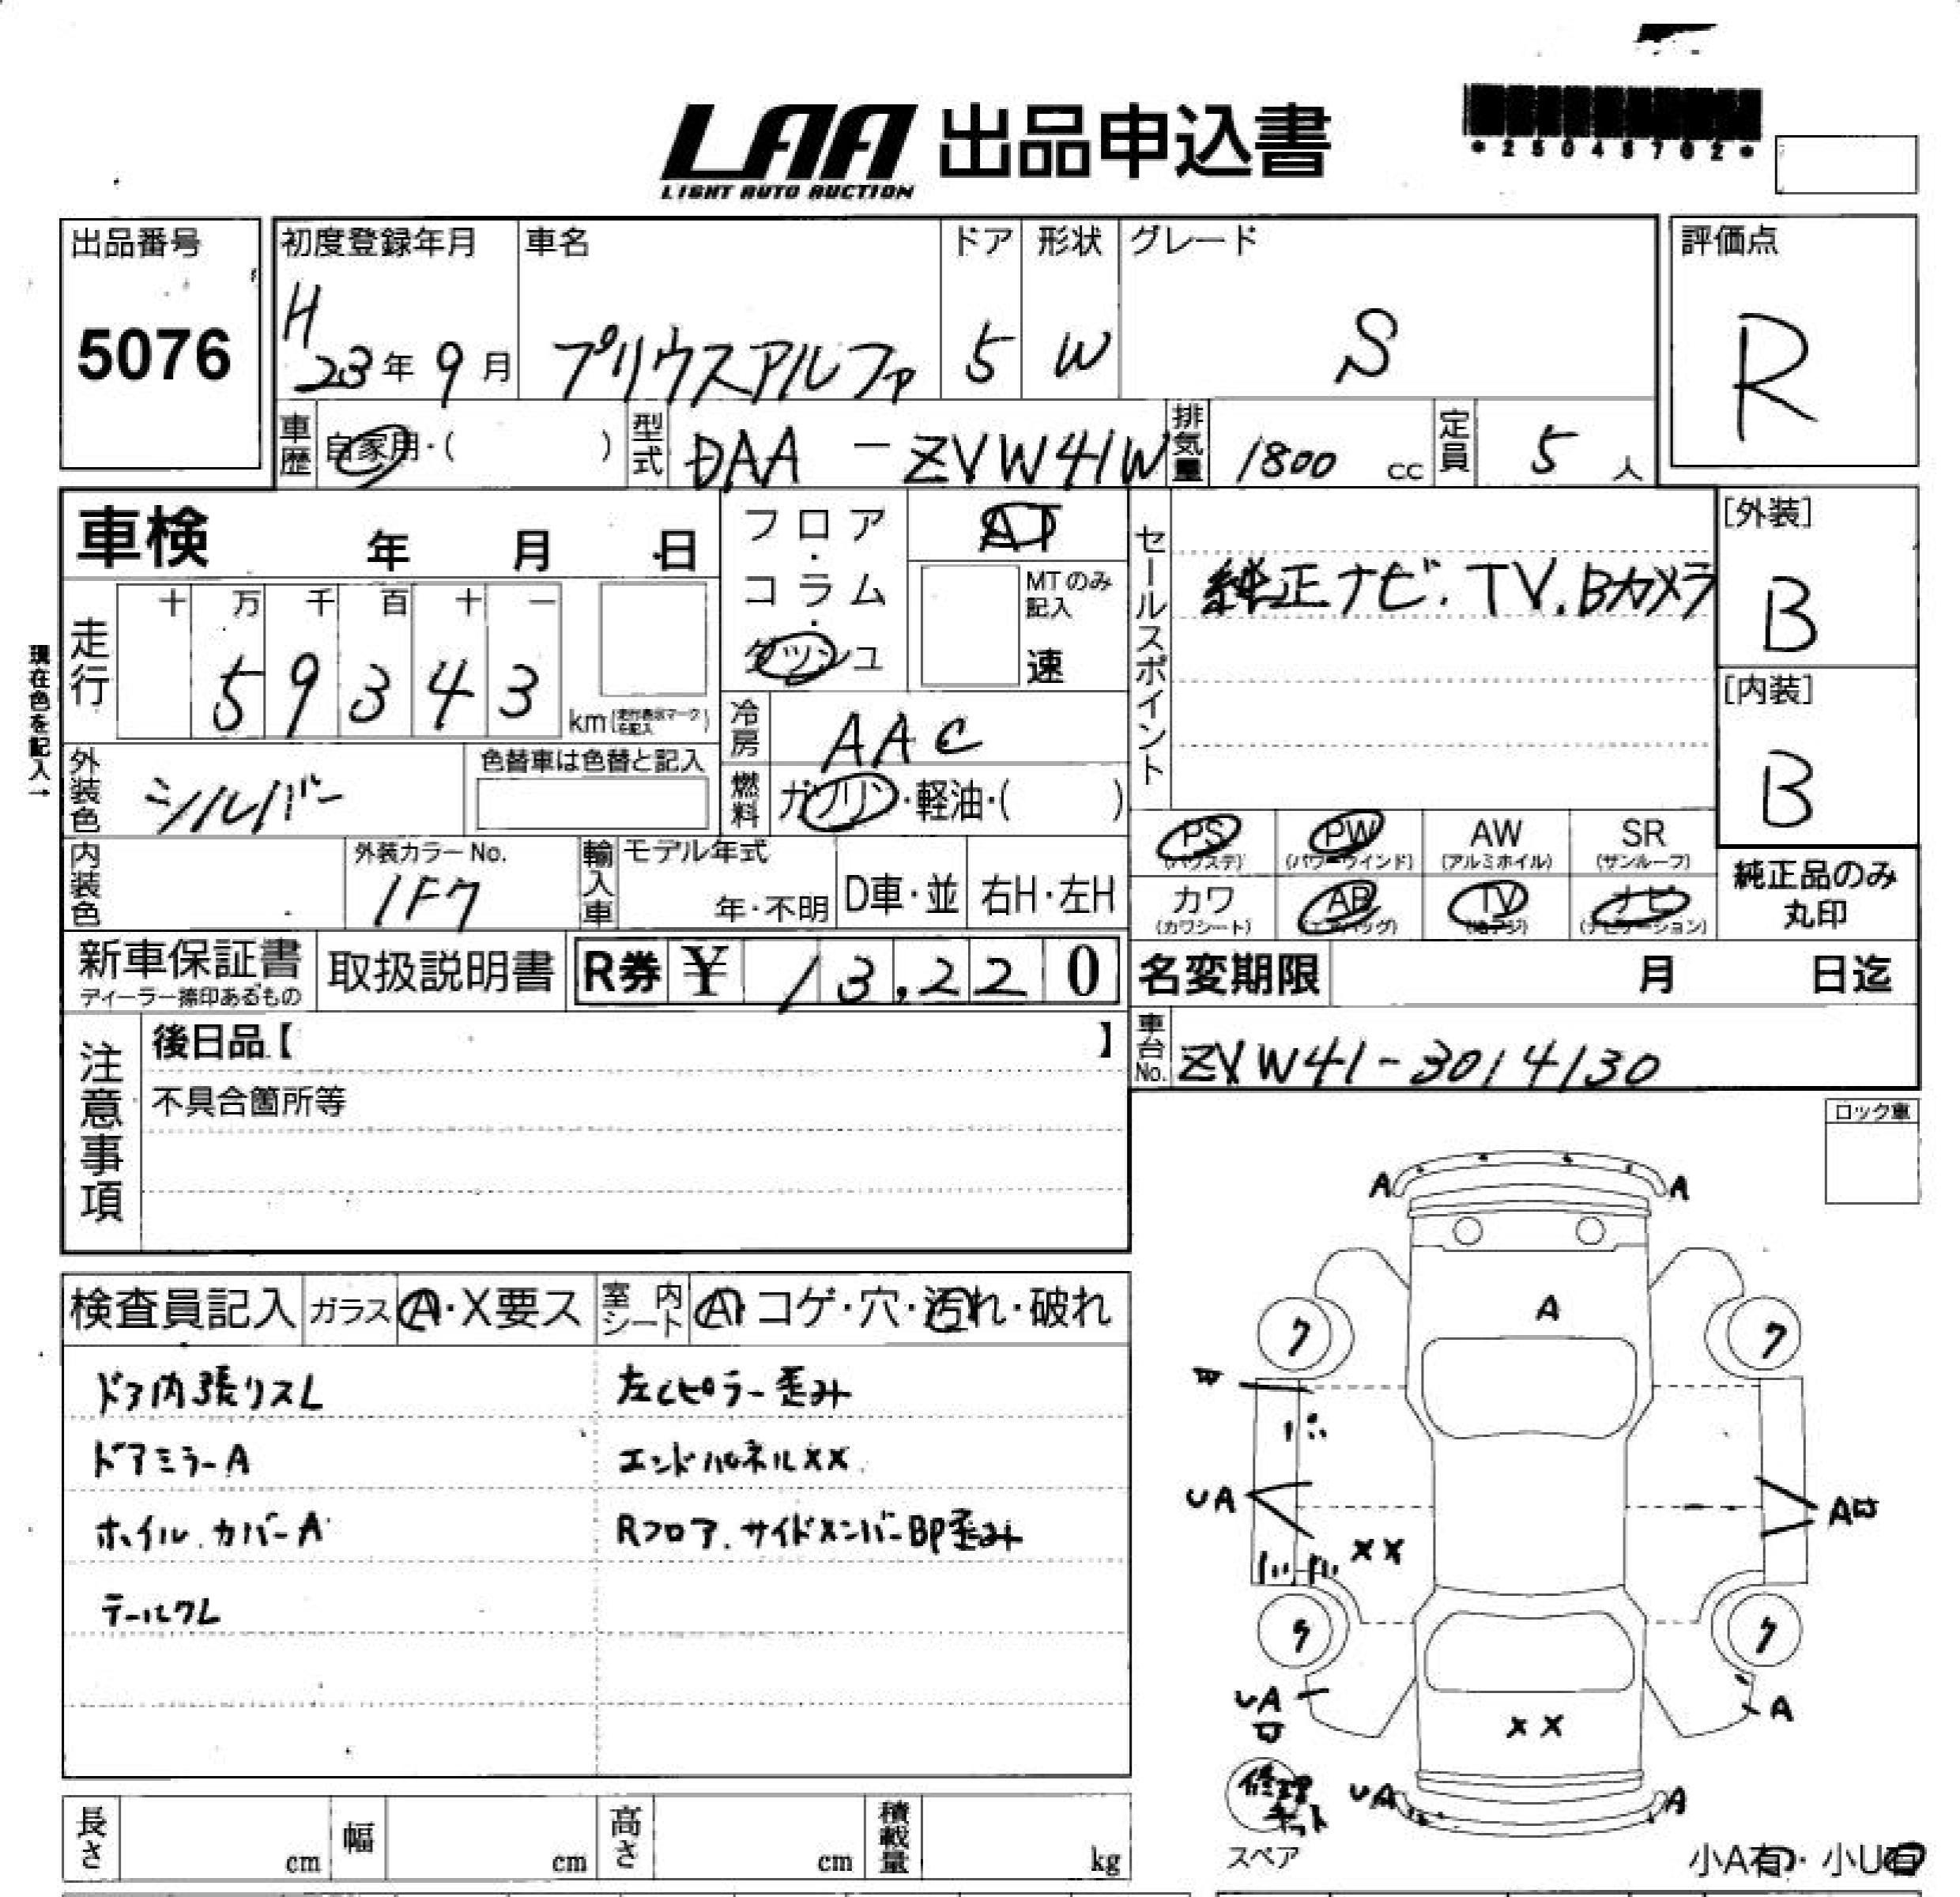 LAA 出品申込書
LIGHT AUTO AUCTION
出品番号
5076
初度登録年月
H 23年 9月
車名
プリウスアルファ
ドア
5
形状
W
グレード
S
評価点
R
車歴 自家用・( )
型式 DAA-ZVW41W
排気量 1800 cc
定員 5 人
車検 年 月 日
フロア・コラム・ダッシュ
AT
MTのみ記入
速
セールスポイント
純正ナビ.TV.Bカメラ
[外装]
B
[内装]
B
現在色を記入→
走行
十 万 千 百 十 一
5 9 3 4 3
km
冷房 AAC
外装色 シルバー
色替車は色替と記入
燃料 ガソリン・軽油・( )
PS (パワステ)
PW (パワーウインド)
AW (アルミホイル)
SR (サンルーフ)
カワ (カワシート)
AB (エアバッグ)
TV (地デジ)
ナビ (ナビゲーション)
純正品のみ
丸印
内装色
外装カラーNo.
1F7
輸入車
モデル年式
年・不明
D車・並
右H・左H
新車保証書
ディーラー捺印あるもの
取扱説明書
R券 ¥ 13,220
名変期限 月 日迄
車台No. ZVW41-3014130
注意事項
後日品【 】
不具合箇所等
ロック車
検査員記入
ガラス A・X要ス
室内シート A・コゲ・穴・汚れ・破れ
ドア内張りスレ
左Cピラー歪み
ドアミラーA
エンドパネルXX
ホイルカバーA
Rフロア.サイドメンバーBP歪み
テールクレ
A A
A
7 7
UA
XX
A
7
UA
A
XX
UA A
修理キット
スペア
小A有・小U有
長さ cm
幅 cm
高さ cm
積載量 kg